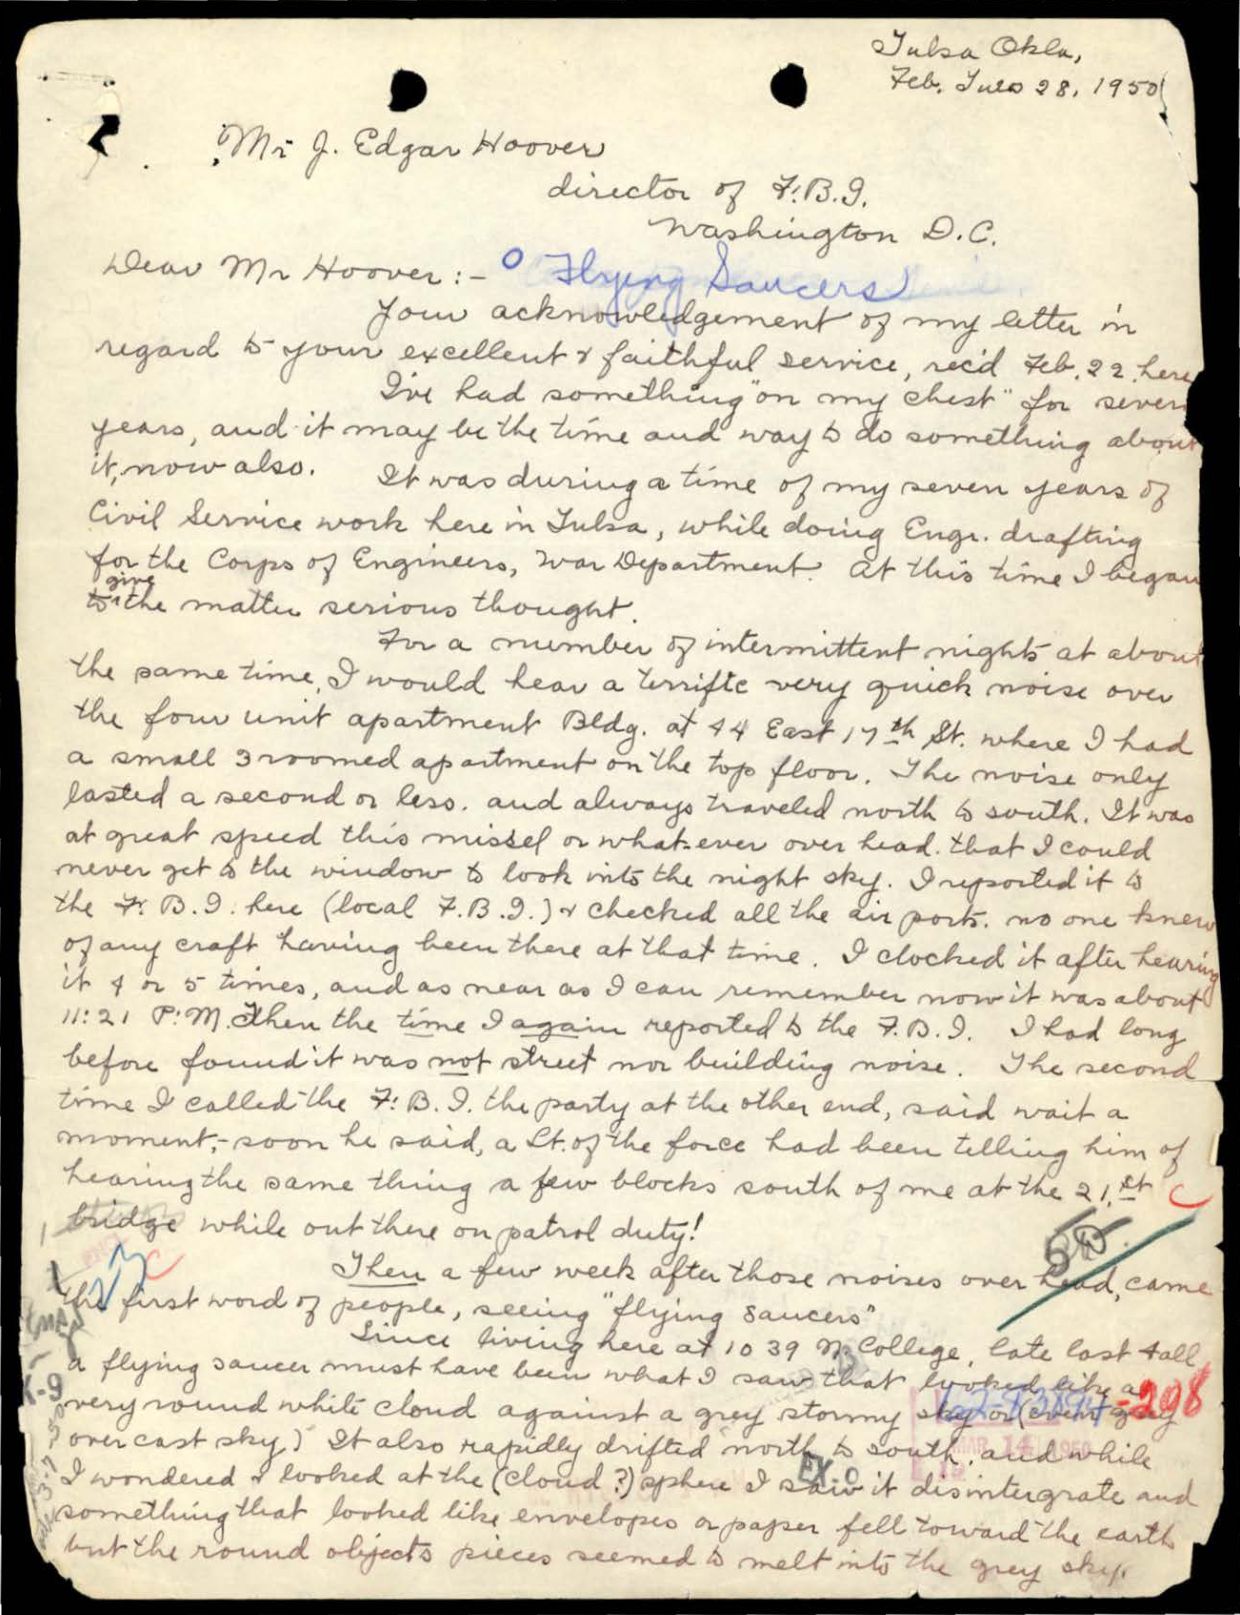 Tulsa Okla,
Feb. Tues 28, 1950
Mr J. Edgar Hoover
director of F.B.I.
Washington D.C.
Dear Mr Hoover:- O Flying Saucers
Your acknowledgement of my letter in
regard to your excellent & faithful service, rec'd Feb. 22. here
I've had something "on my chest" for
years, and it may be the time and way to do something about
it, now also. It was during a time of my seven years of
Civil Service work here in Tulsa, while doing Engr. drafting
for the Corps of Engineers, War Department. At this time I began
give
to ^ the matter serious thought.
For a number of intermittent nights at about
the same time, I would hear a terrifte very quick noise over
the four unit apartment Bldg. at 44 East 17th St. where I had
a small 3 roomed apartment on the top floor. The noise only
lasted a second or less. and always traveled north to south. It was
at great speed this missel or what-ever over head. that I could
never get to the window to look into the night sky. I reported it to
the F.B.I. here (local F.B.I.) & checked all the air ports. no one knew
of any craft having been there at that time. I clocked it after hearing
it 4 or 5 times, and as near as I can remember now it was about
11:21 P.M. Then the time I again reported to the F.B.I. I had long
before found it was not street nor building noise. The second
time I called the F.B.I. the party at the other end, said wait a
moment,- soon he said, a Lt. of the force had been telling him of
hearing the same thing a few blocks south of me at the 21st
bridge while out there on patrol duty!
Then a few week after those noises over head, came
the first word of people, seeing "flying saucers"
Since living here at 1039 N. College, late last fall,
a flying saucer must have been what I saw that looked like a
very round white cloud against a grey stormy sky or (even grey
-298
over cast sky) It also rapidly drifted north to south, and while
MAR 14 1950
I wondered & looked at the (cloud?) sphere I saw it disintergrate and
EX-0
something that looked like envelopes or paper fell toward the earth
but the round objects pieces seemed to melt into the grey sky.